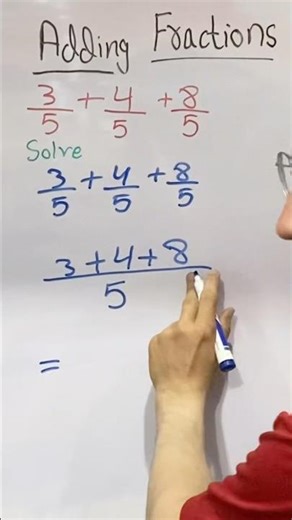 Adding Fractions
3/5 + 4/5 + 8/5
Solve
3/5 + 4/5 + 8/5
3+4+8/5
=